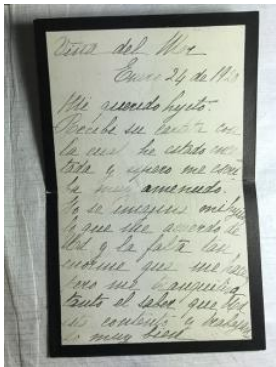 Viña del Mar
Enero 24 de 19
Mi querido hijito.
Recibí su carta con
la cual he estado
tada y espero me escri
ba muy amenudo.
No se imagina mi hijito
lo que me acuerdo de
Ud y la falta tan
enorme que me hace
Pero me tranquiliza
tanto el saber que
contento y
muy bien